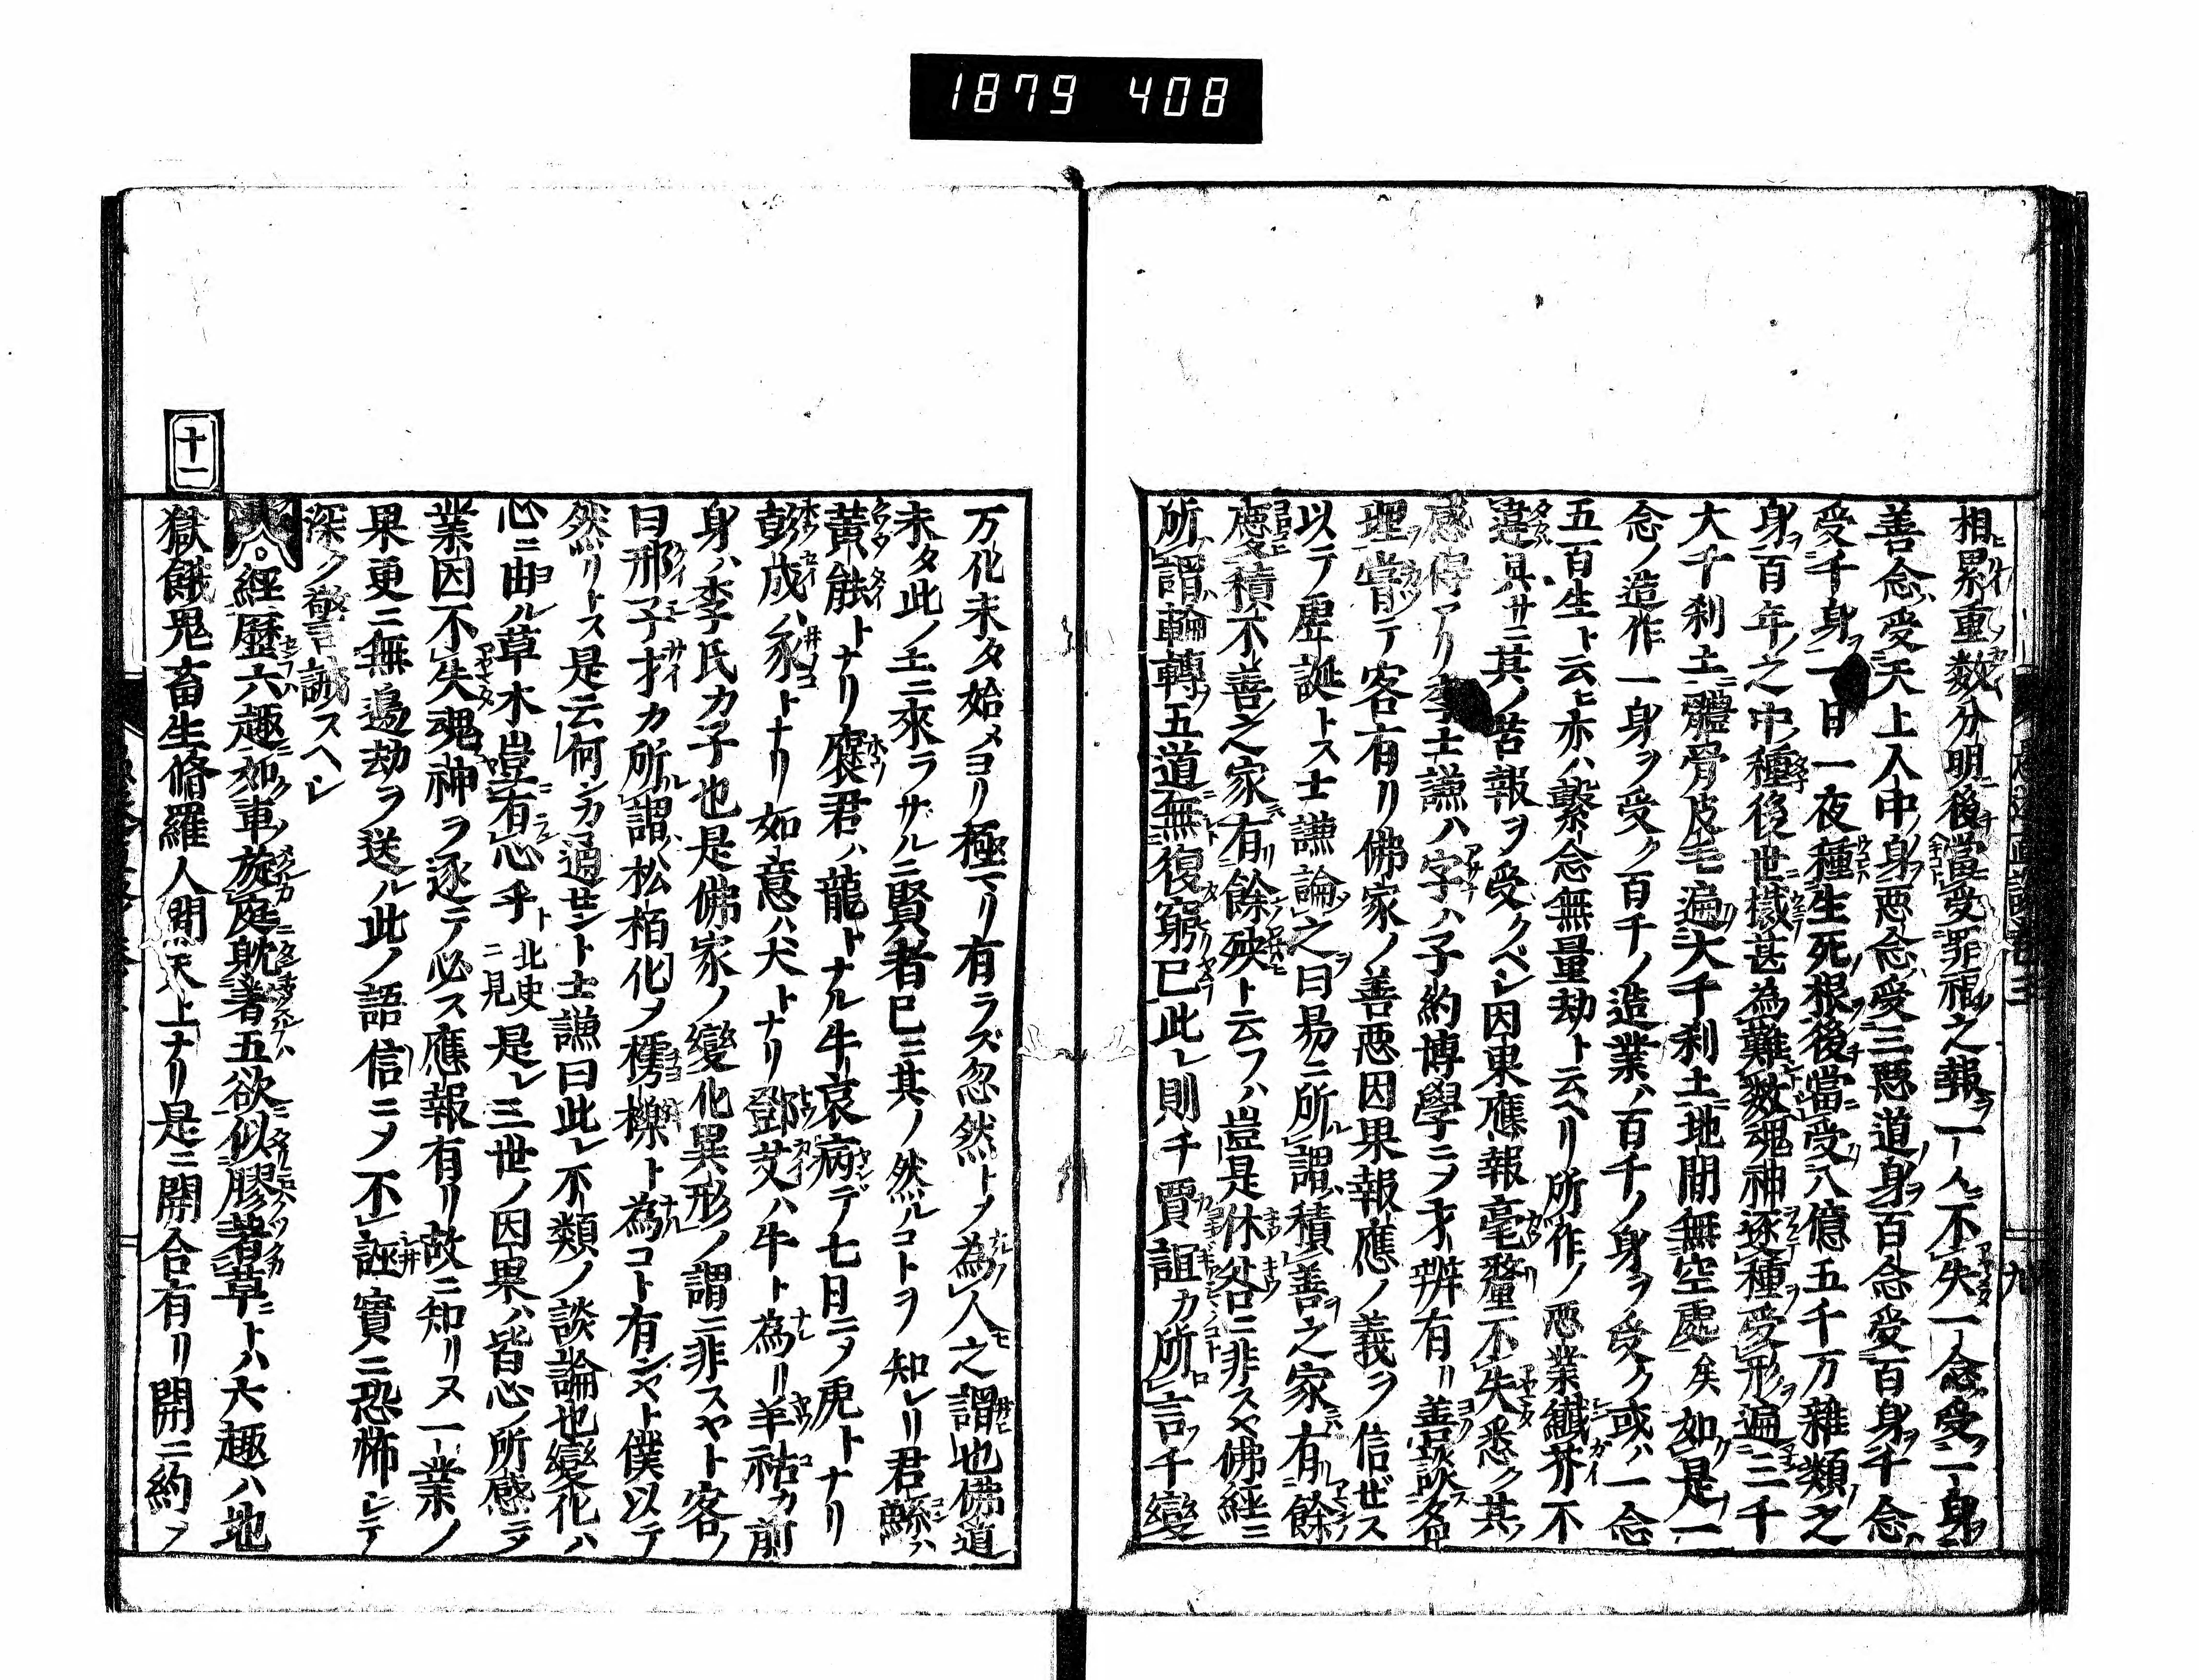 1879 408
相累重数分明後當受罪福之報一人不失一念受一身
善念受天上人中身惡念受三惡道身百念受百身千念
受千身一日一夜種生死根後當受八億五千万雜類之
身百年之中種後世栽甚為難數魂神逐種受形遍三千
大千刹土體骨皮毛遍大千刹土地間無空處矣如是一
念ノ造作一身ヲ受ク百千ノ造業ハ百千ノ身ヲ受ク或ハ一念
五百生ト云ヒ亦ハ繫念無量劫ト云ヘリ所作ノ惡業纖芥不
違具サニ其ノ苦報ヲ受クベシ因果應報毫釐不失悉ク其
感得アリ李士謙ハ字ハ子約博學ニヲ才辨有リ善談名
理嘗テ客有リ佛家ノ善惡因果報應ノ義ヲ信ゼス
以テ虛誕トス士謙論之曰易ニ所謂積善之家有餘
慶積不善之家有餘殃ト云フハ豈是休咎ニ非スヤ佛經ニ
所謂輪轉五道無復窮已此レ則チ賈誼カ所言千變
万化未タ始メヨリ極マリ有ラズ忽然トメ為人之謂也佛道
未タ此ノ土ニ來ラザルニ賢者已ニ其ノ然ルコトヲ知レリ君鯀ハ
黃能トナリ褒君ハ龍トナル牛哀病デ七日ニメ虎トナリ
彭成ハ豕トナリ如意ハ犬トナリ鄧艾ハ牛ト為リ羊祜カ前
身ハ李氏カ子也是佛家ノ變化異形ノ謂ニ非スヤト客ノ
曰邢子才カ所謂松栢化メ樗櫟ト為コト有ンヤト僕以テ
然リトス是云何ンカ通センヤト士謙曰此レ不類ノ談論也變化ハ
心ニ由ル草木豈有心乎ト 北史ニ見 是レ三世ノ因果ハ皆心ノ所感ニテ
業因不失魂神ヲ逐テ必ス應報有リ故ニ知リヌ一業ノ
果更ニ無邊劫ヲ送ル此ノ語信ニメ不誣實ニ恐怖シテ
深ク警誡スヘシ
經歷六趣如車旋庭躭著五欲似膠著草トハ六趣ハ地
十一
獄餓鬼畜生脩羅人間天上ナリ是ニ開合有リ開ニ約メ